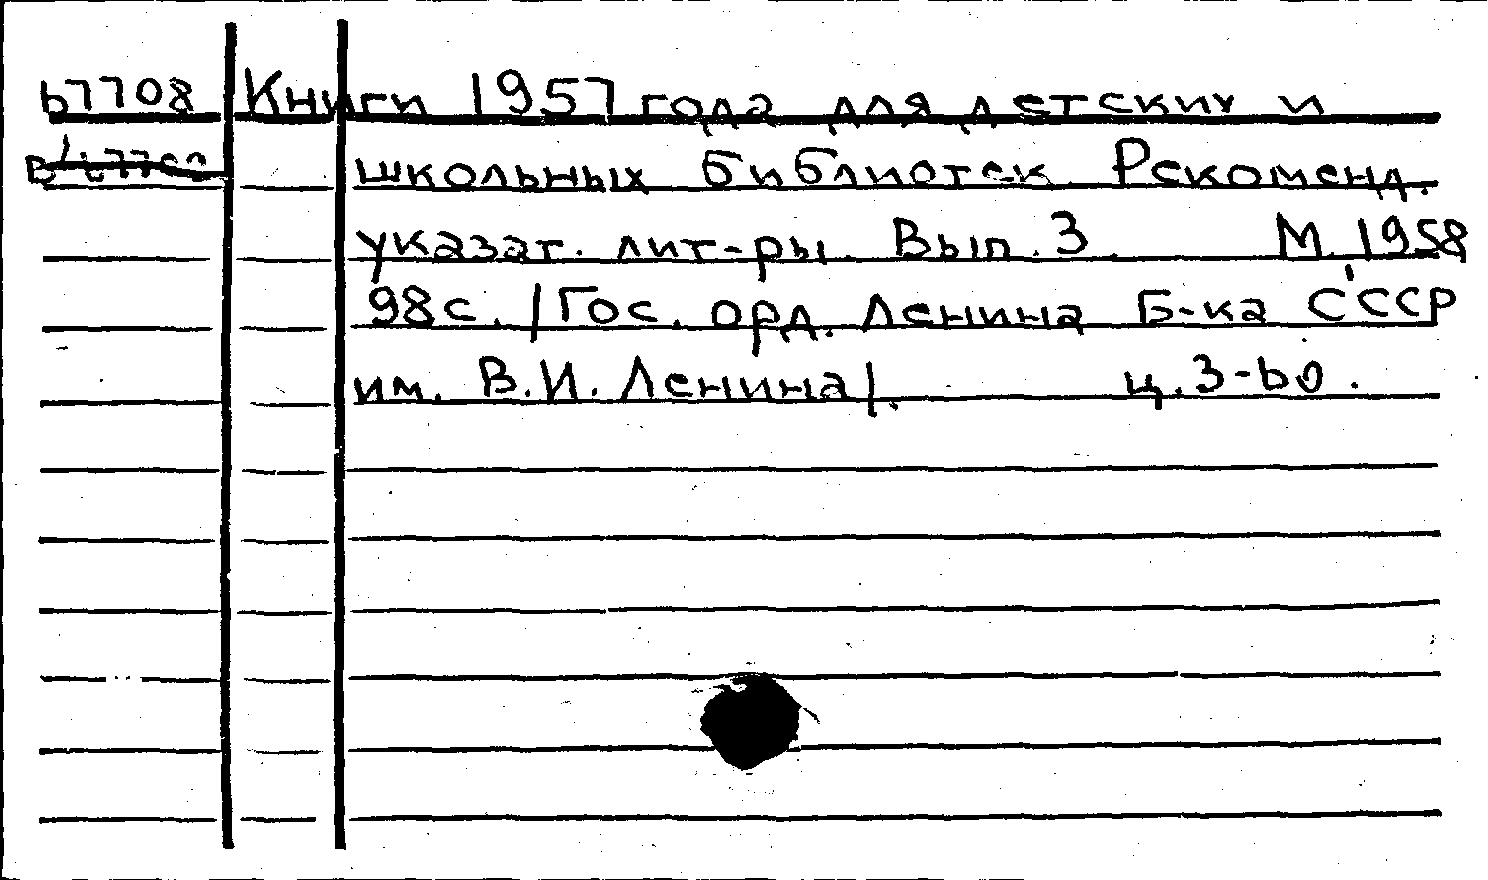 Б7708 Книги 1957 года для детских и
школьных библиотек. Рекоменд.
указат. лит-ры. Вып. 3. М. 1958
98с. /Гос. орд. Ленина Б-ка СССР
им. В.И. Ленина/. ц. 3-60.